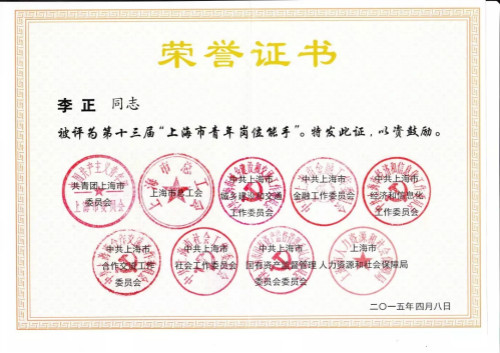 荣誉证书
李正 同志
被评为第十三届“上海市青年岗位能手”。特发此证,以资鼓励。
共青团上海市委员会
上海市总工会
中共上海市城乡建设和交通工作委员会
中共上海市金融工作委员会
中共上海市经济和信息化工作委员会
中共上海市合作交流工作委员会
中共上海市社会工作委员会
中共上海市国有资产监督管理委员会委员会
上海市人力资源和社会保障局
二〇一五年四月八日